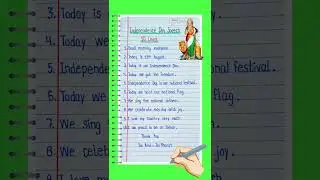 Independence Day Speech
10 Lines
1. Good morning everyone.
2. Today is 15th August.
3. Today is our Independence Day.
4. Today we got the freedom.
5. Independence Day is our national festival.
6. Today we hoist our national flag.
7. We sing the national anthem.
8. We celebrate this day with joy.
9. I love my country very much.
10. I am proud to be an Indian.
Thank You
Jai Hind - Jai Bharat
3. Today is
4. Today
5. Independ
6. Today we
7. We sing
8. We celeb
onal festival.
lag.